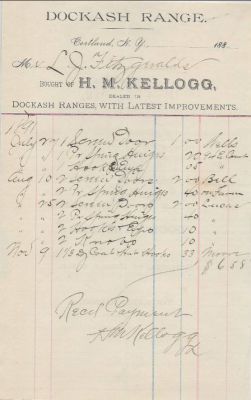 DOCKASH RANGE.
Cortland, N. Y. 188
Mr L. J. Fitzgerald
BOUGHT OF H. M. KELLOGG,
DEALER IN
DOCKASH RANGES, WITH LATEST IMPROVEMENTS.
July 27 1 Screen Door 1 00 Wells
1 Pr Spring Hinges 20
Hook & Eye 05
Aug 10 2 Screen Doors 2 Bill
2 Pr Spring Hinges 40 on Farm
" 25 2 Screen Doors 2 00 Lucas
2 Pr Spring Hinges 40
2 Hooks & Eyes 10
2 Knobs 10
Nov 9 Coat & Hat Hooks 33
$6 58
Recd Payment
H M Kellogg